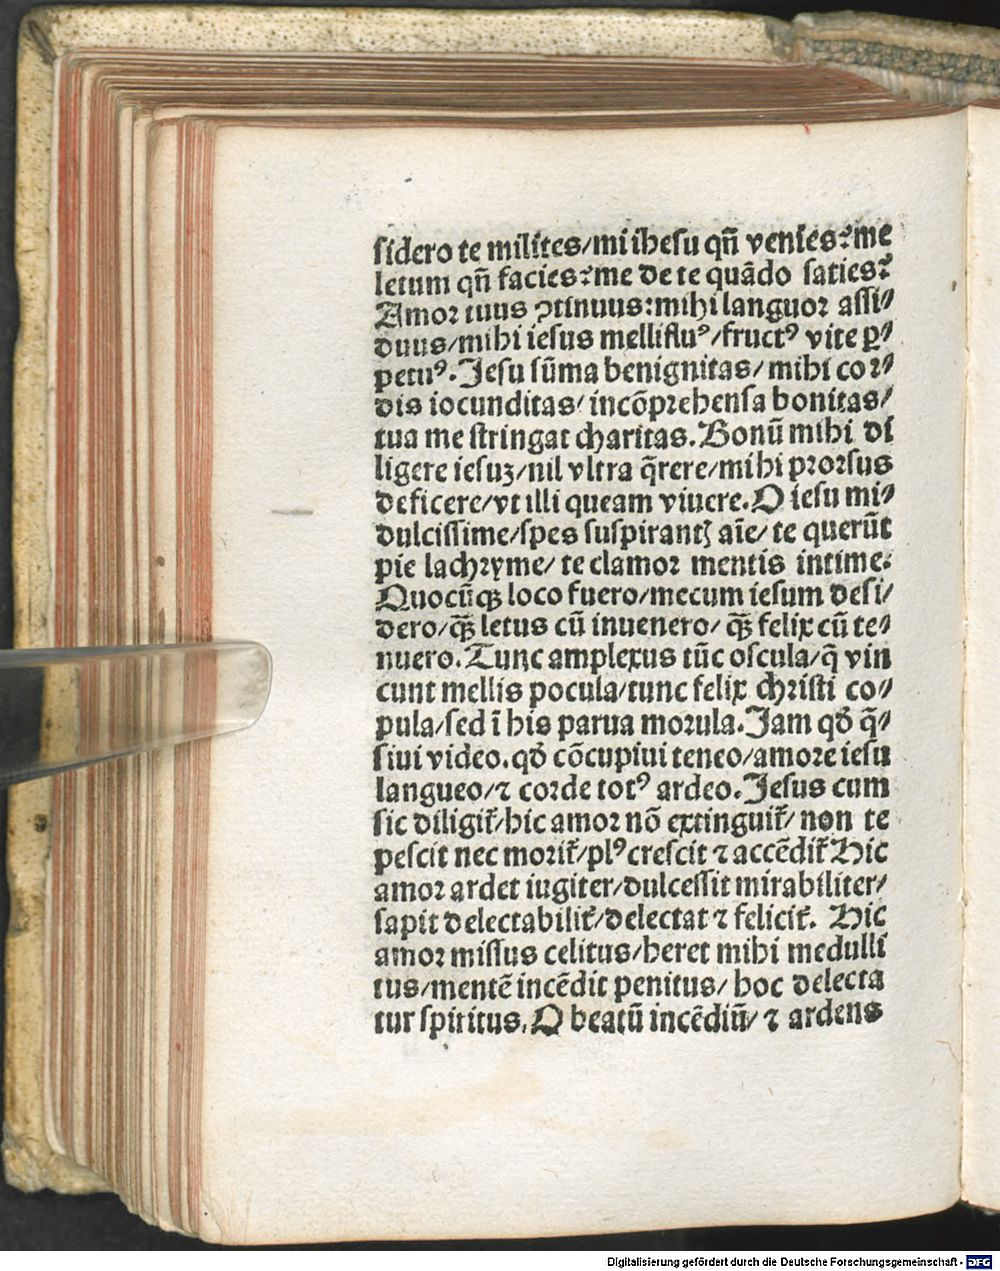 sidero te milites/mi ihesu qn̄ venies? me
letum qn̄ facies? me de te quādo saties?
Amor tuus ꝯtinuus: mihi languor assi⸗
duus/mihi iesus mellifluꝰ/fructꝰ vite ꝑ⸗
petuꝰ. Jesu sūma benignitas/mihi cor⸗
dis iocunditas/incōprehensa bonitas/
tua me stringat charitas. Bonū mihi di
ligere iesuʒ/nil vltra q̄rere/mihi prorsus
deficere/vt illi queam viuere. O iesu mi⸗
dulcissime/spes suspirantꝫ aīe/te querūt
pie lachryme/te clamor mentis intime.
Quocūqꝫ loco fuero/mecum iesum desi/
dero/qꝫ̄ letus cū inuenero/qꝫ̄ felix cū te⸗
nuero. Tunc amplexus tūc oscula/q̄ vin
cunt mellis pocula/tunc felix christi co⸗
pula/sed ī his parua morula. Jam qđ q̄⸗
siui video. qđ cōcupiui teneo/amore iesu
langueo/⁊ corde totꝰ ardeo. Jesus cum
sic diligit᷑/hic amor nō extinguit᷑/non te
pescit nec morit᷑/plꝰ crescit ⁊ accēdit᷑ Hic
amor ardet iugiter/dulcessit mirabiliter/
sapit delectabilit᷑/delectat ⁊ felicit᷑. Hic
amor missus celitus/heret mihi medulli
tus/mentē incēdit penitus/hoc delecta
tur spiritus. O beatū incēdiū/⁊ ardens
Digitalisierung gefördert durch die Deutsche Forschungsgemeinschaft - DFG